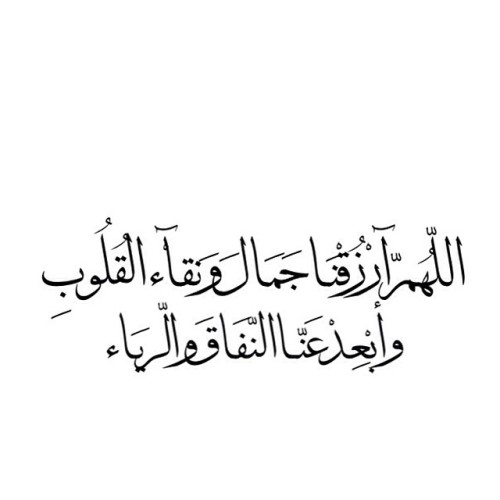 اللّهمّ آرْزُقْنا جَمَالَ وَنَقآء القُلُوبِ
وأبْعِدْ عَنَّا النَّفَاقَ والّريَاء